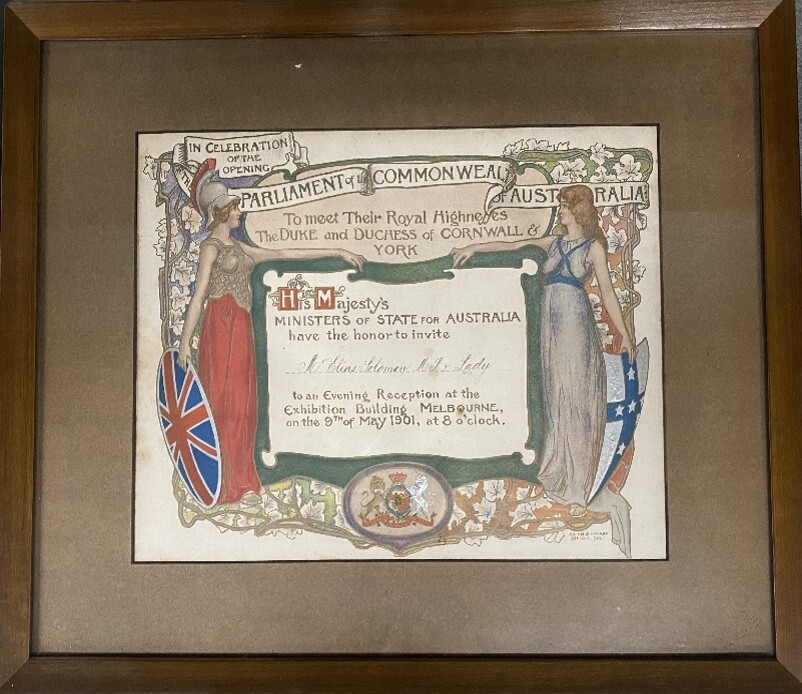 IN CELEBRATION
OF THE
OPENING
PARLIAMENT of COMMONWEAL
of AUSTRALIA
To meet Their Royal Highnesses
The DUKE and DUCHESS of CORNWALL &
YORK
His Majesty's
MINISTERS OF STATE FOR AUSTRALIA
have the honor to invite
Mr Elias Solomon M.P. & Lady
to an Evening Reception at the
Exhibition Building MELBOURNE,
on the 9TH of MAY 1901, at 8 o'clock.